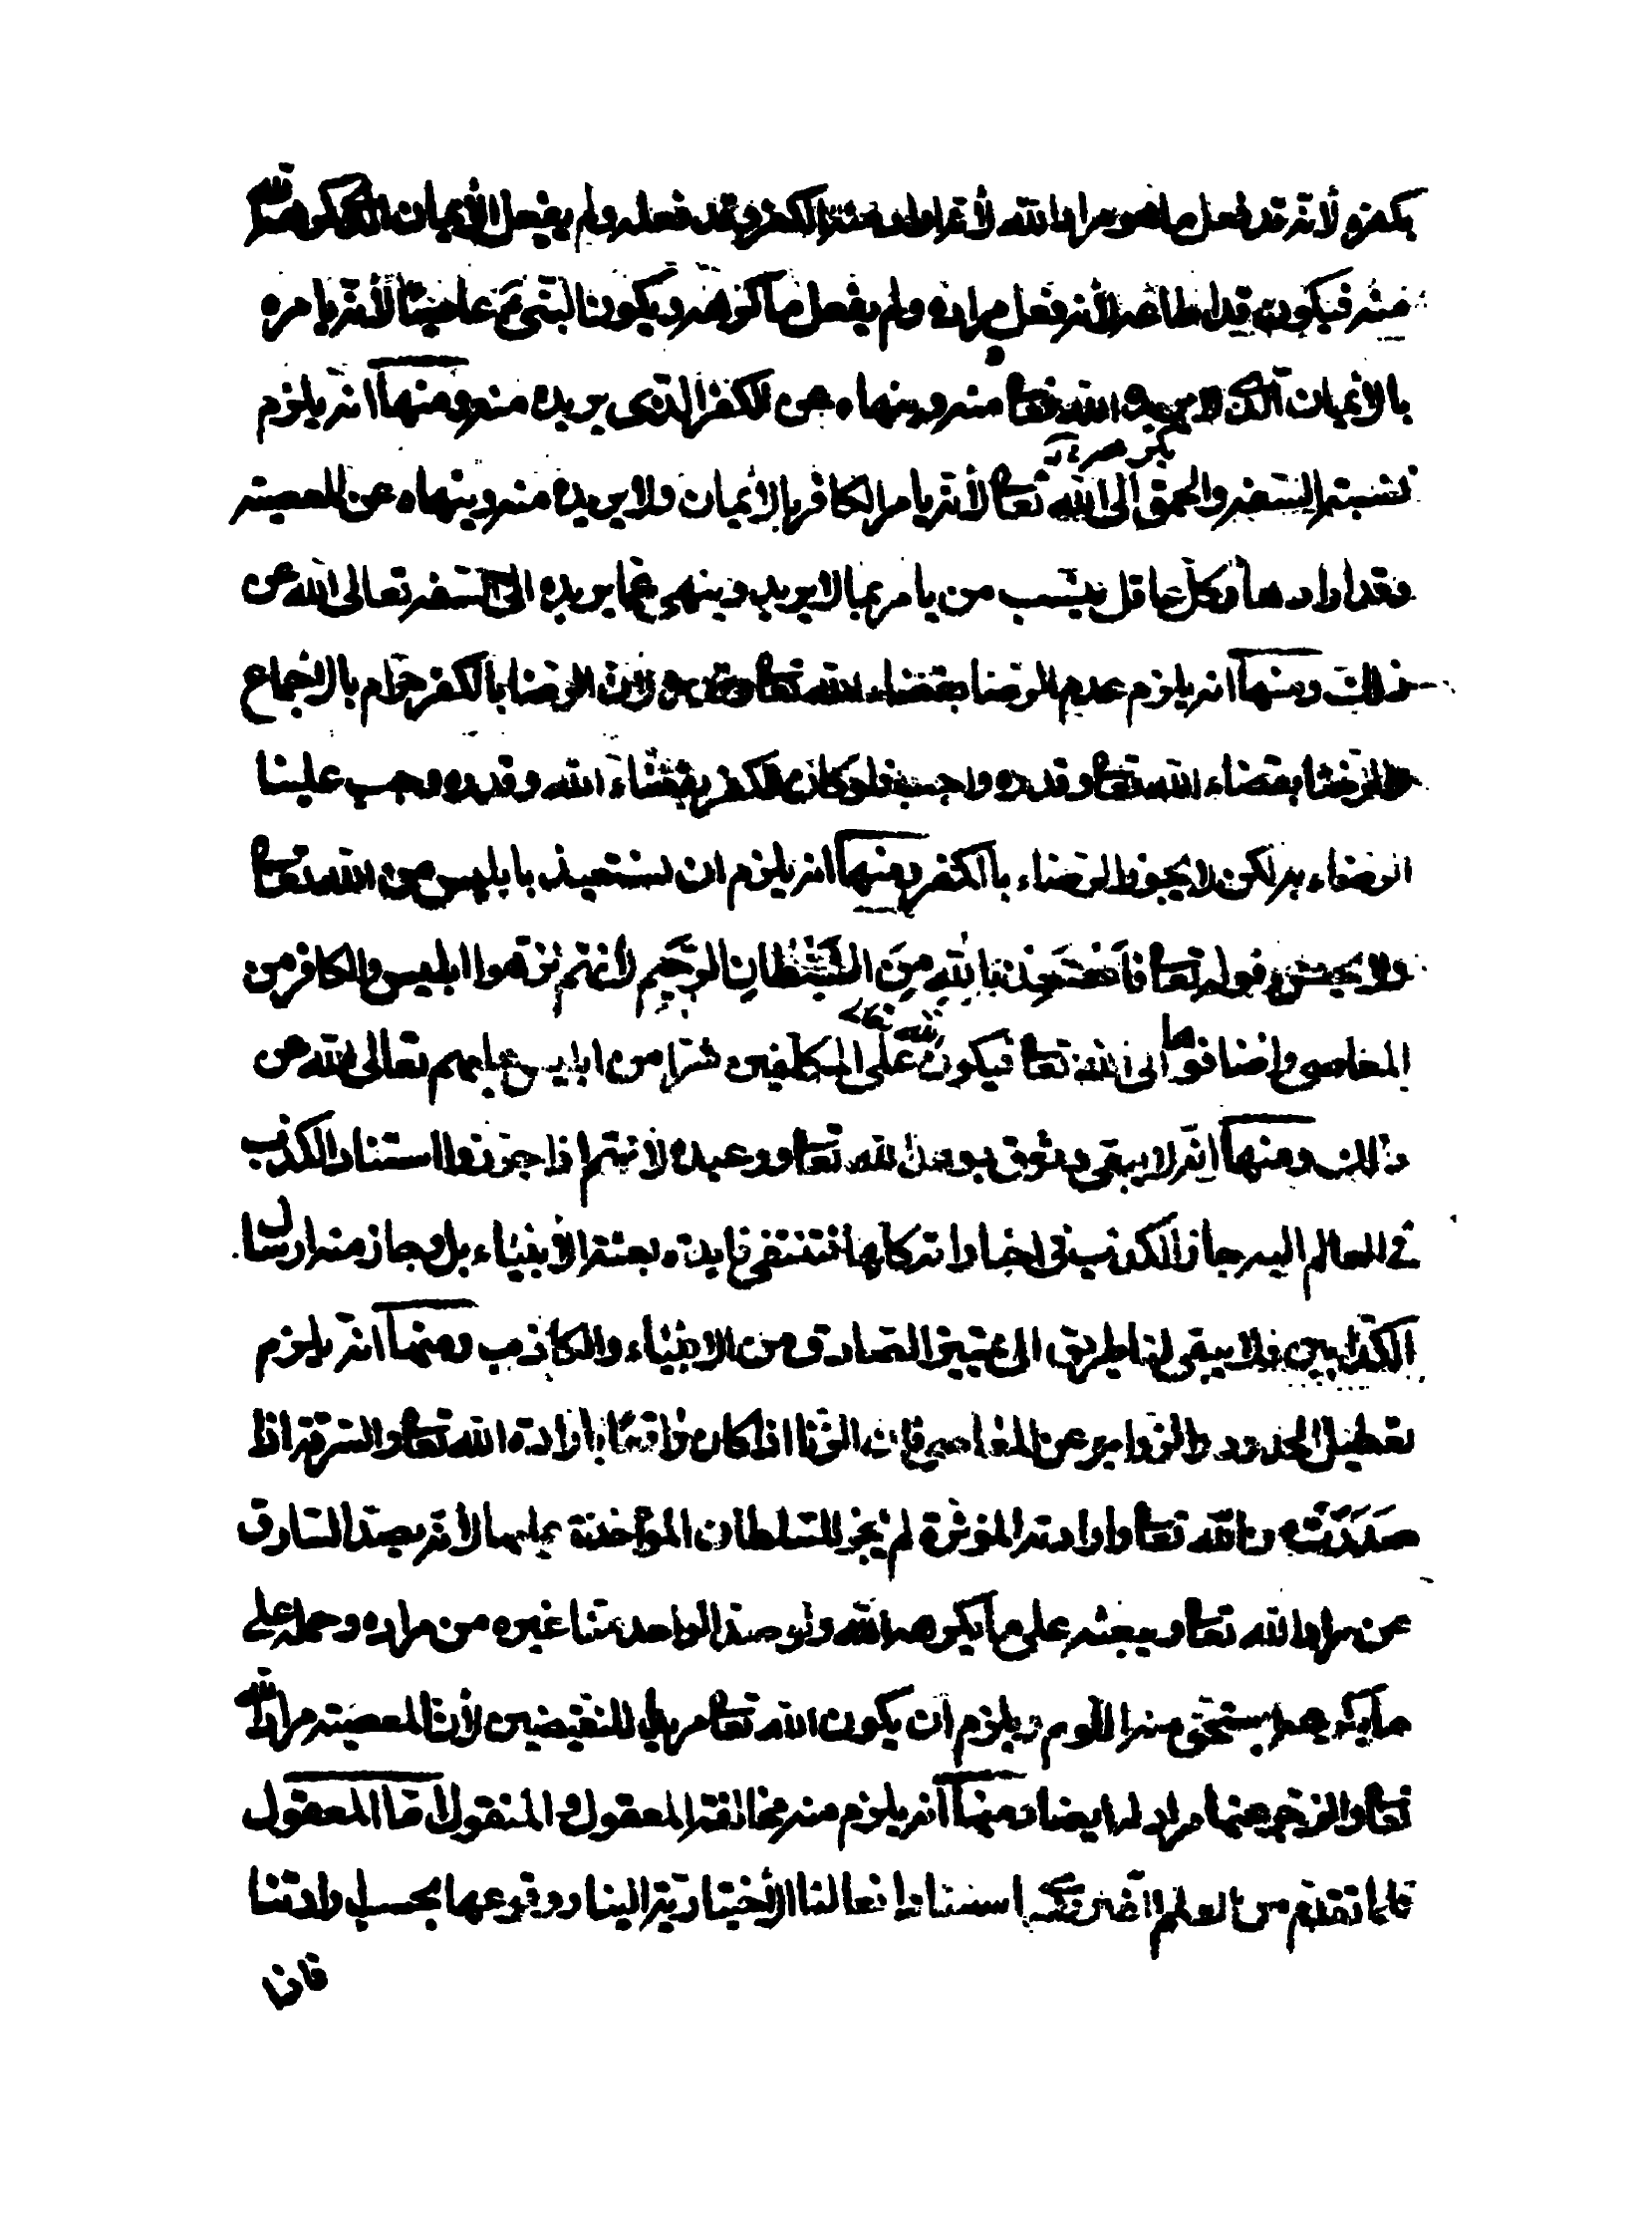 بكفره لأنه قد فعل ما هو مراد الله لأنه اراد منه الكفر وقد فعله ولم يفعل الأيمان الذي كرهه الله
منه فيكون قد اطاعه لأنه فعل مراده ولم يفعل ما كرهه ويكون النبي ع عاصيًا لأنه يامره
بالأيمان الذي لا يريده الله تعا منه وينهاه عن الكفر الذي يريده منه ومنها انه يلزم
نسبة السفه والحمق الى الله تعا لأنه يامر الكافر بالأيمان ولا يريده منه وينهاه عن المعصيته
وقد ارادها وكل عاقل ينسب من يامر بما لا يريد وينهى عما يريده الى السفه تعالى الله عن
ذلك ومنها انه يلزم عدم الرضا بقضاء الله تعا وقدره لأن الرضا بالكفر حرام بالاجماع
والرضا بقضاء الله تعا وقدره واجب فلو كان الكفر بقضاء الله وقدره وجب علينا
الرضاء به لكن لا يجوز الرضاء بالكفر ومنها انه يلزم ان نستعيذ بابليس من الله تعا
ولا يحسن قوله تعا فاستعذ بالله من الشيطان الرجيم لأنهم نزهوا ابليس والكافر من
المعاصي واضافوها الى الله تعا فيكون الله تعا على المكلفين شرا من ابليس عليهم تعالى الله عن
ذلك ومنها انه لا يبقى وثوق بوعد الله تعا ووعيده لأنهم اذا جوزوا استناد الكذب
في العالم اليه جاز الكذب في اخباراته كلها فتنتفي فايدة بعثة الأنبياء بل وجاز منه ارسال
الكذابين فلا يبقى لنا طريق الى تمييز الصادق من الانبياء والكاذب ومنها انه يلزم
تعطيل الحدود والزواجر عن المعاصي فان الزنا اذا كان واقعًا بارادة الله تعا والسرقة اذا
صدرت من الله تعا وارادته المؤثرة لم يجز للسلطان المؤاخذة عليها لأنه يصد السارق
عن مراد الله تعا ويبعثه على ما يكرهه الله ولو صد الواحد منا غيره من مراده وحمله على
ما يكرهه استحق منه اللوم ويلزم ان يكون الله تعا مريدا للنقيضين لأن المعصيته مراد الله
تعا والزجر عنها مراد له ايضا ومنها انه يلزم منه مخالفة المعقول والمنقول اما المعقول
فلما تقدم من العلم استناد افعالنا الأختيارية الينا ووقوعها بحسب ارادتنا
فان